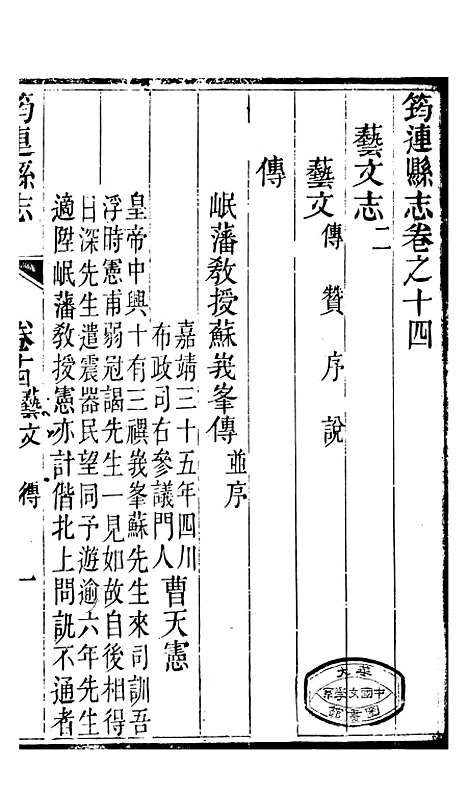 筠連縣志卷之十四
藝文志二
藝文 傳 贊 序 說
傳
岷藩敎授蘇峩峯傳 並序
嘉靖三十五年四川
布政司右參議門人曹天憲
皇帝中興十有三禩峩峯蘇先生來司訓吾
浮時憲甫弱冠謁先生一見如故自後相得
日深先生遣震器民望同予遊逾六年先生
適陞岷藩敎授憲亦計偕北上問訊不通者
筠連縣志
卷十四藝文 傳
一
中國文學系
圖書館